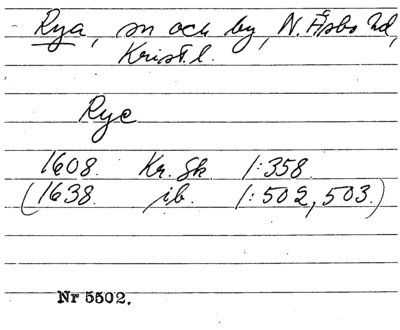 Rya, sn och by, N. Åsbo hd,
Krist. l.
Rye
1608. Kr. Sk 1:358.
(1638. ib. 1:502, 503.)
Nr 5502.